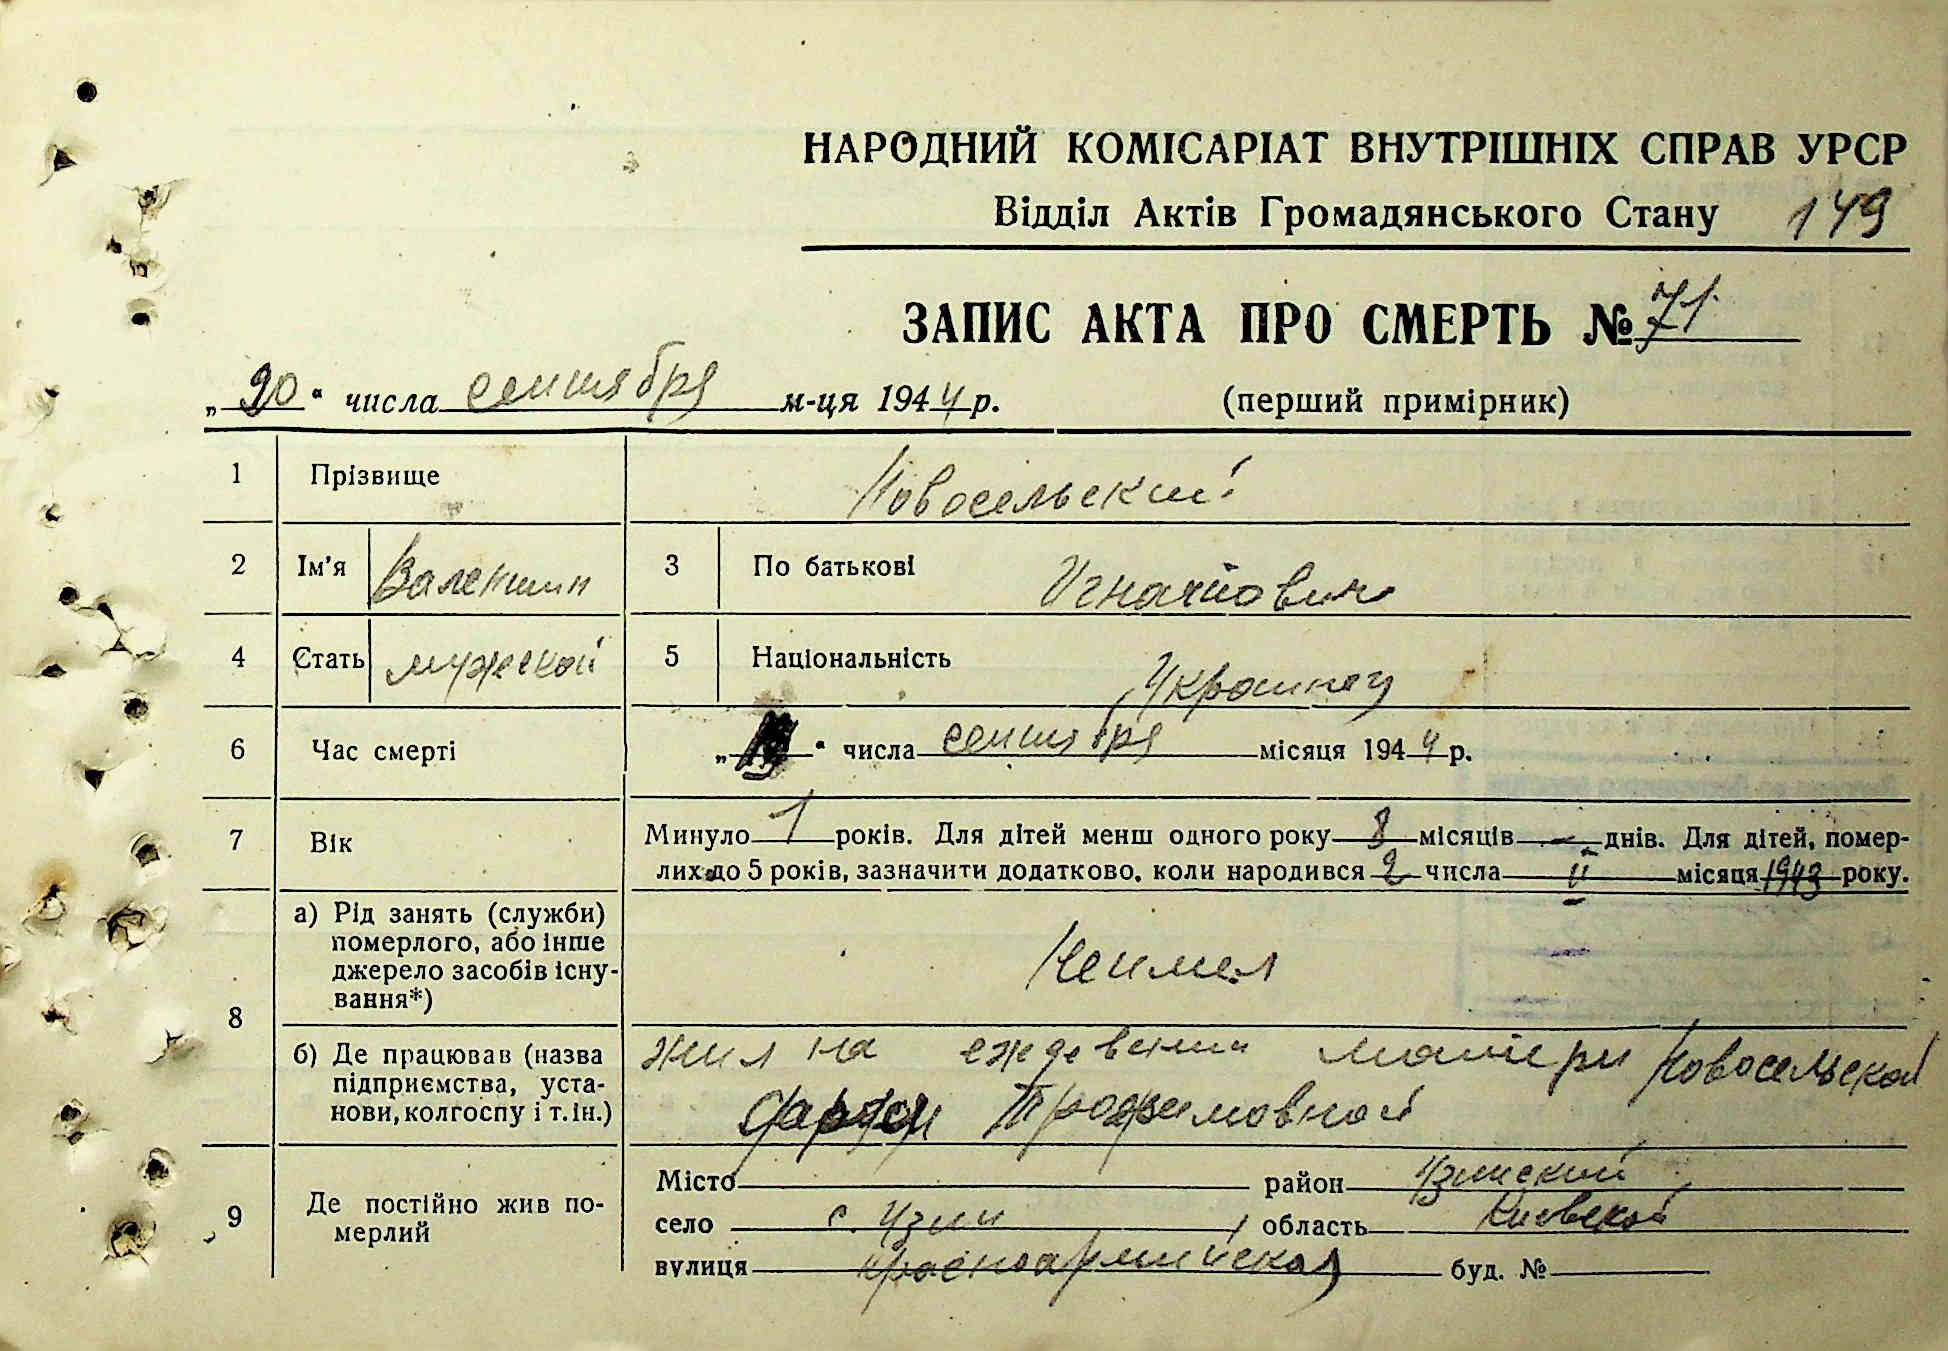 НАРОДНИЙ КОМІСАРІАТ ВНУТРІШНІХ СПРАВ УРСР
Відділ Актів Громадянського Стану 149
ЗАПИС АКТА ПРО СМЕРТЬ № 71
„20“ числа сентября м-ця 1944 р. (перший примірник)
1 Прізвище Новосельский
2 Ім'я Валентин 3 По батькові Игнатович
4 Стать мужской 5 Національність Украинец
6 Час смерті „ “ числа сентября місяця 1944 р.
7 Вік Минуло 1 років. Для дітей менш одного року 8 місяців - днів. Для дітей, помер-
лих до 5 років, зазначити додатково, коли народився 2 числа місяця 1943 року.
8 а) Рід занять (служби)
померлого, або інше
джерело засобів існу-
вання*)
Неимел
б) Де працював (назва
підприємства, уста-
нови, колгоспу і т. ін.)
жил на иждевении матери Новосельской
Трофимовной
9 Де постійно жив по-
мерлий
Місто район Узинский
село с. Узин область Киевской
вулиця Красноармийская буд. №